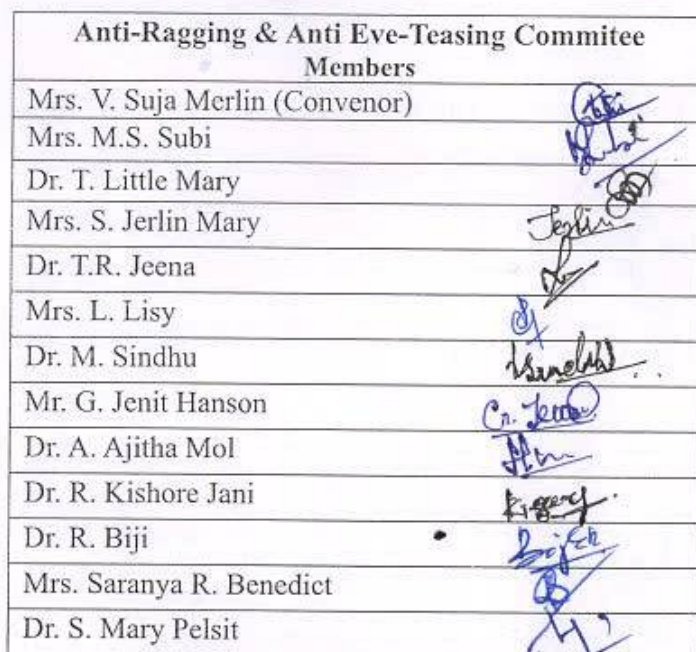 Anti-Ragging & Anti Eve-Teasing Commitee
Members
Mrs. V. Suja Merlin (Convenor)
Mrs. M.S. Subi
Dr. T. Little Mary
Mrs. S. Jerlin Mary Jerlin
Dr. T.R. Jeena
Mrs. L. Lisy
Dr. M. Sindhu
Mr. G. Jenit Hanson
Dr. A. Ajitha Mol
Dr. R. Kishore Jani
Dr. R. Biji
Mrs. Saranya R. Benedict
Dr. S. Mary Pelsit